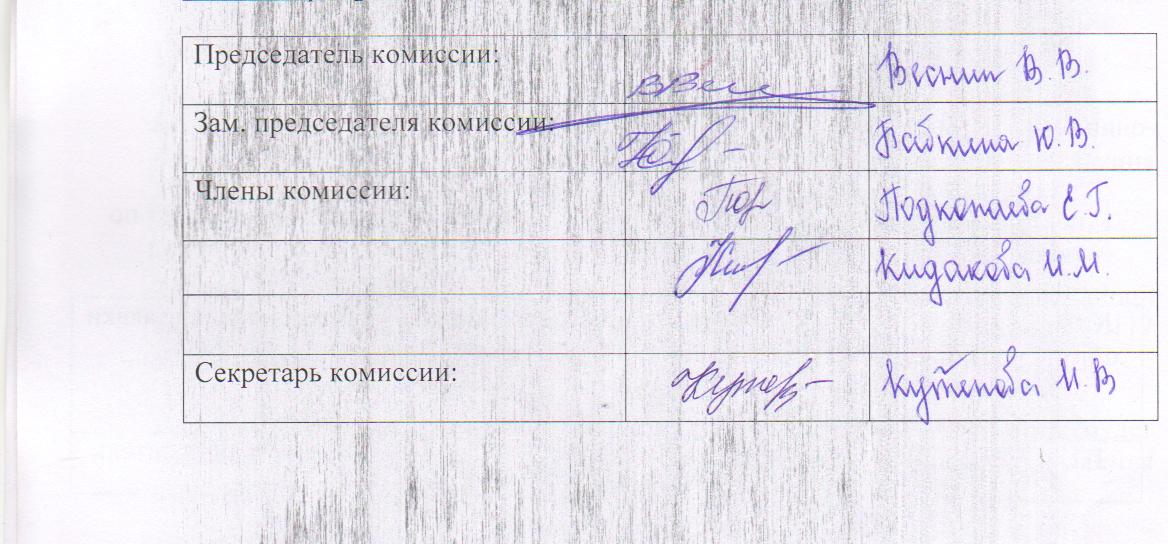 Председатель комиссии: Веснин В. В.
Зам. председателя комиссии: Бабкина Ю. В.
Члены комиссии: Подкопаева Е. Г.
Кидакова И. М.
Секретарь комиссии: Кутепова И. В